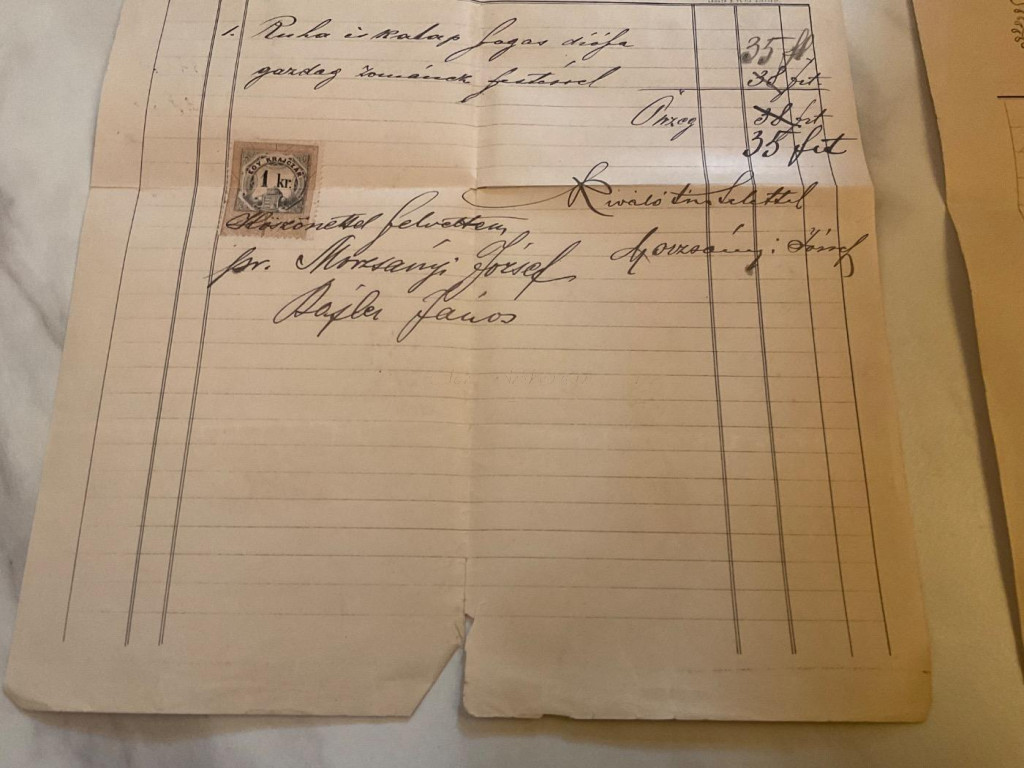 1. Ruha és kalap fogas diófa 35 frt
gazdag zománcz festéssel 38 frt
Összeg 38 frt
35 frt
EGY KRAJCZÁR
1 kr.
Kiváló tisztelettel
Köszönettel felvettem
Morzsányi József
pr. Morzsányi József
János